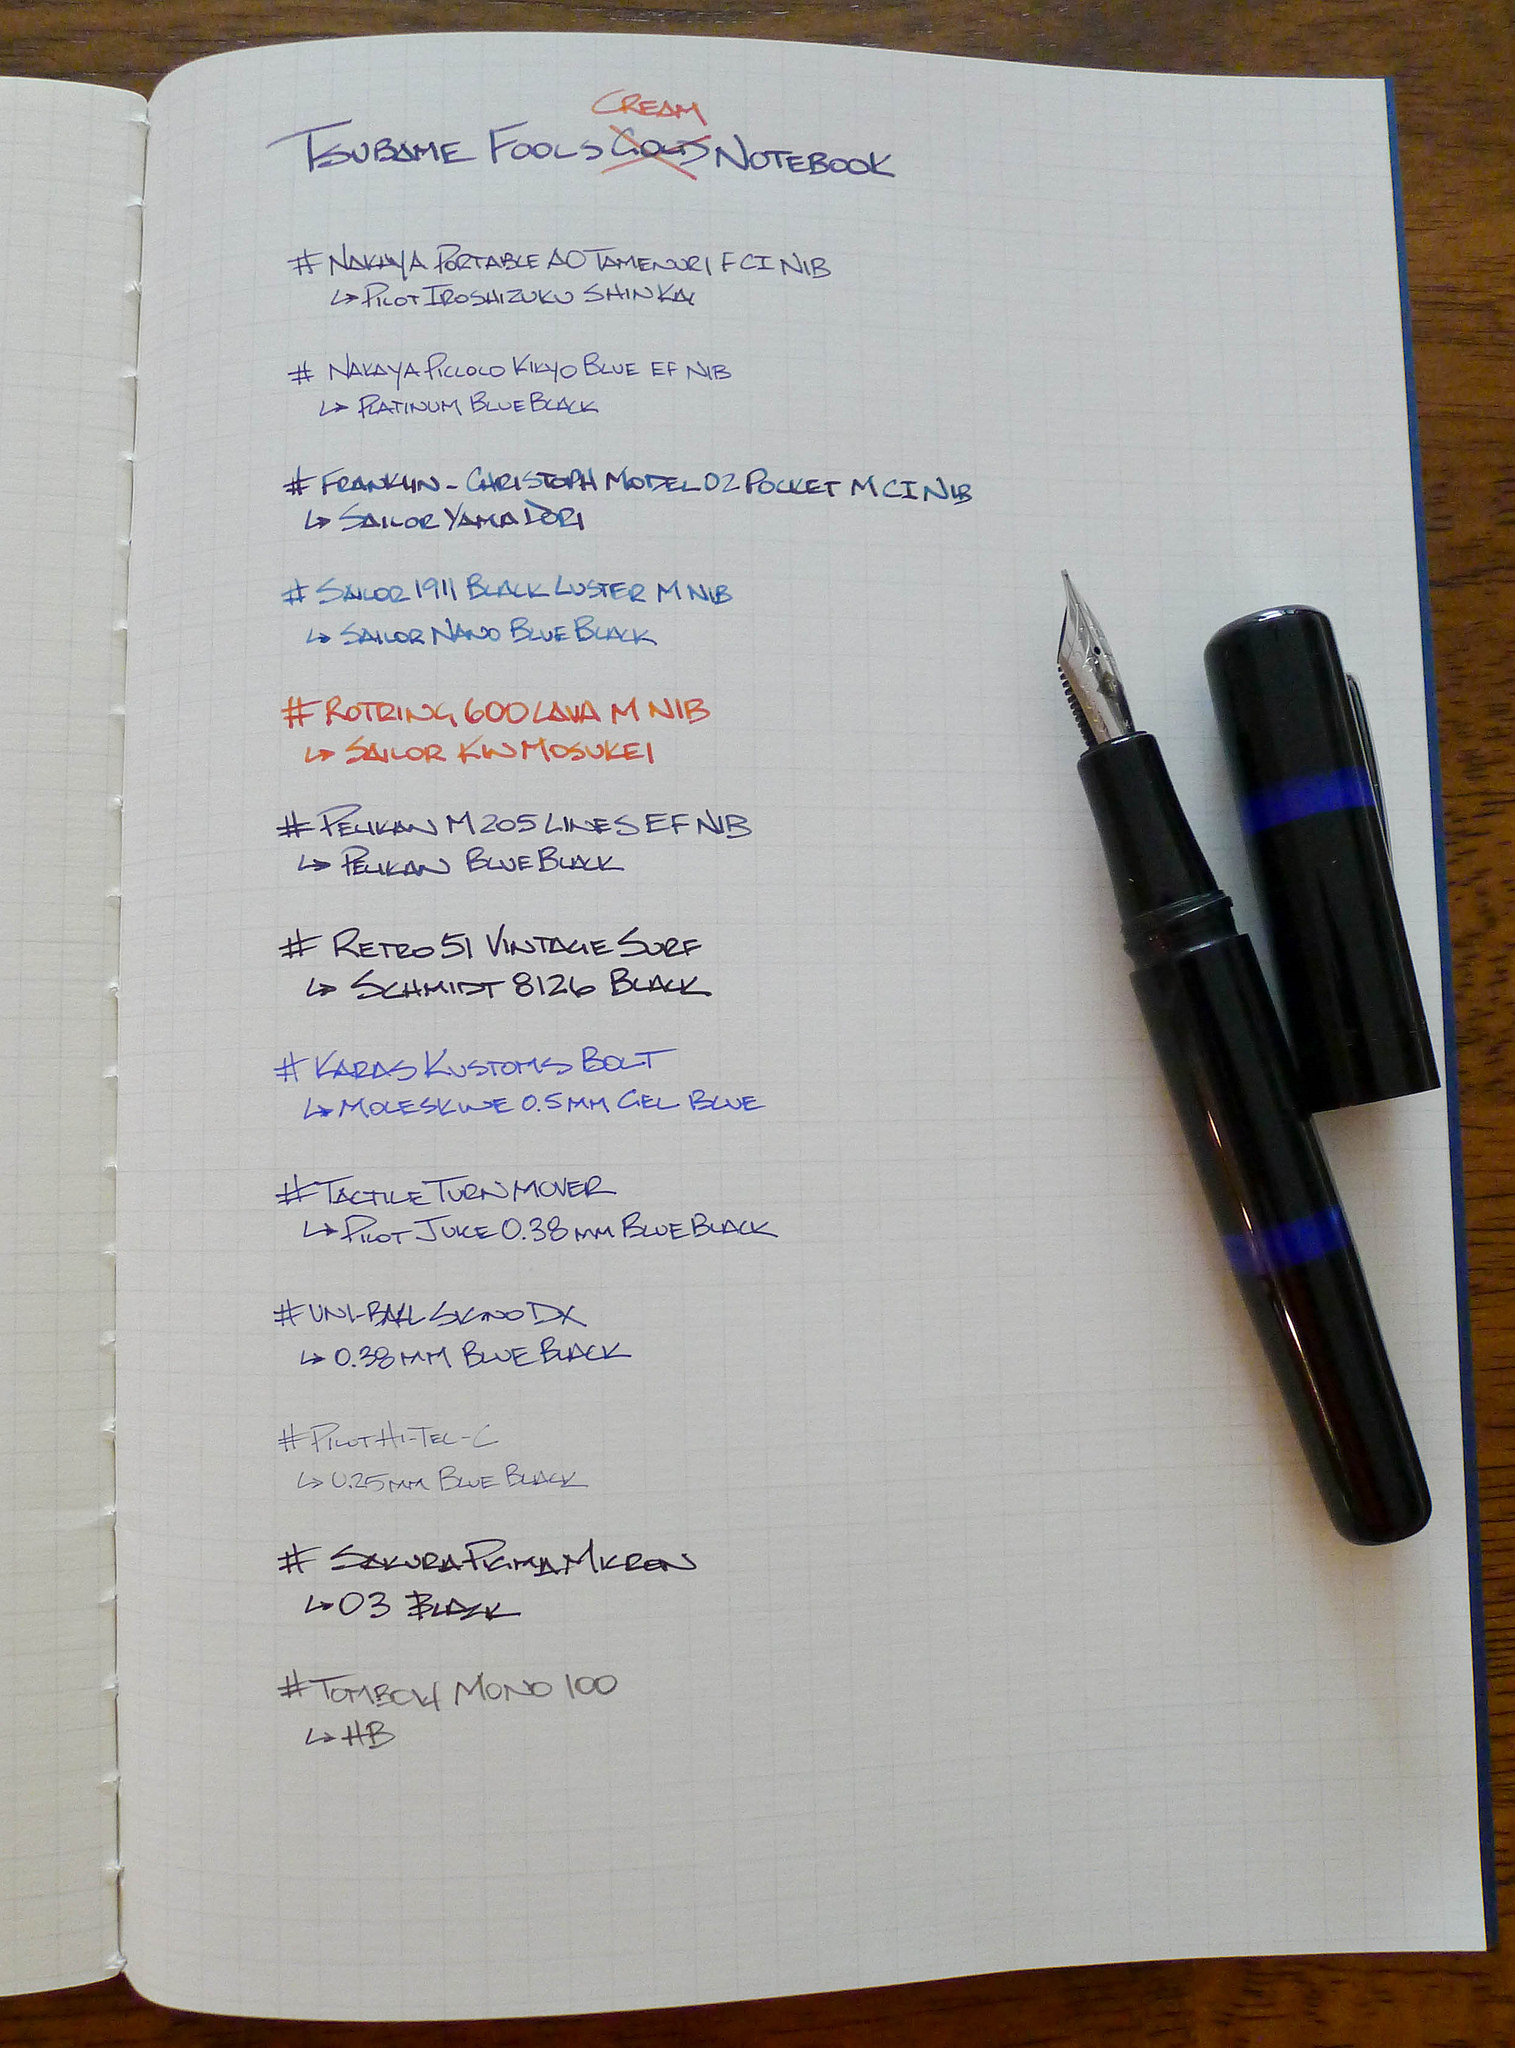 CREAM
TSUBAME FOOLS GOLD NOTEBOOK
# NAKAYA PORTABLE AO TAMENURI F CI NIB
↳ PILOT IROSHIZUKU SHIN KAI
# NAKAYA PICCOLO KIKYO BLUE EF NIB
↳ PLATINUM BLUE BLACK
# FRANKLIN-CHRISTOPH MODEL 02 POCKET M CI NIB
↳ SAILOR YAMA DORI
# SAILOR 1911 BLACK LUSTER M NIB
↳ SAILOR NANO BLUE BLACK
# ROTRING 600 LAVA M NIB
↳ SAILOR KIN MOSUKEI
# PELIKAN M205 LINES EF NIB
↳ PELIKAN BLUE BLACK
# RETRO 51 VINTAGE SURF
↳ SCHMIDT 8126 BLACK
# KARAS KUSTOMS BOLT
↳ MOLESKINE 0.5MM GEL BLUE
# TACTILE TURN MOVER
↳ PILOT JUICE 0.38MM BLUE BLACK
# UNI-BALL SIGNO DX
↳ 0.38MM BLUE BLACK
# PILOT HI-TEC-C
↳ 0.25MM BLUE BLACK
# SAKURA PIGMA MICRON
↳ 03 BLACK
# TOMBOW MONO 100
↳ HB